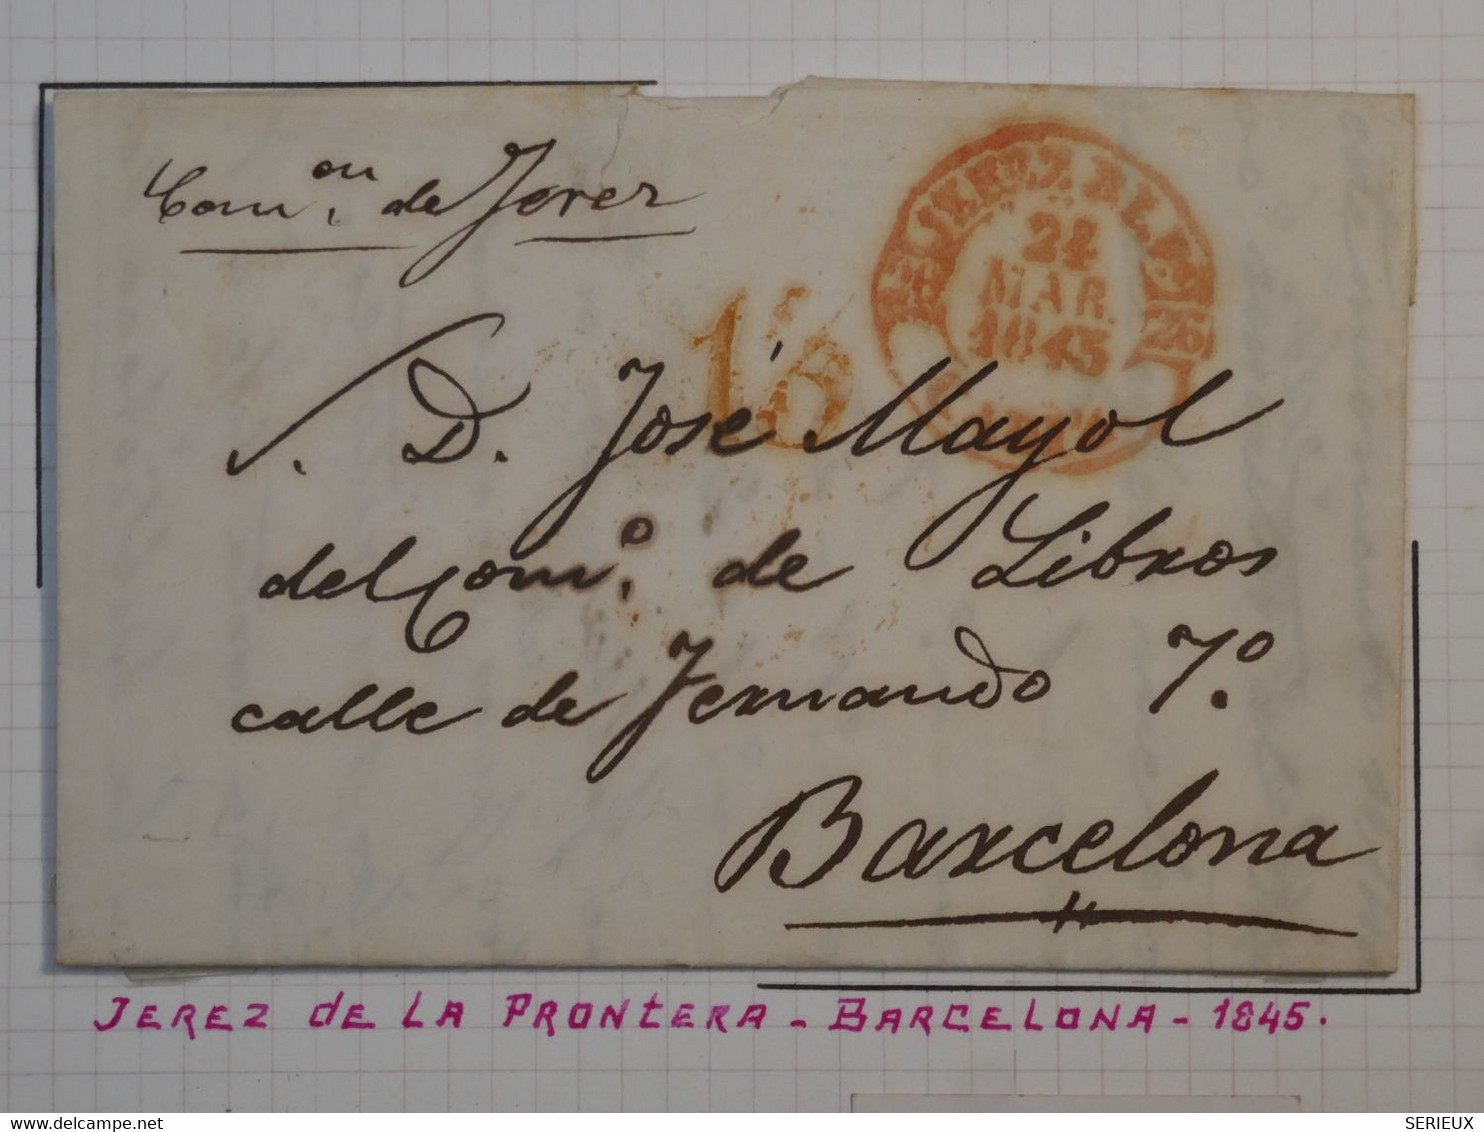 Com.on de Jerez
24
MAR.
1845
26
S. D. José Mayol
del Com.o de Libros
calle de Fernando 7.o
Barcelona
JEREZ DE LA PRONTERA - BARCELONA - 1845.
www.delcampe.net
SERIEUX